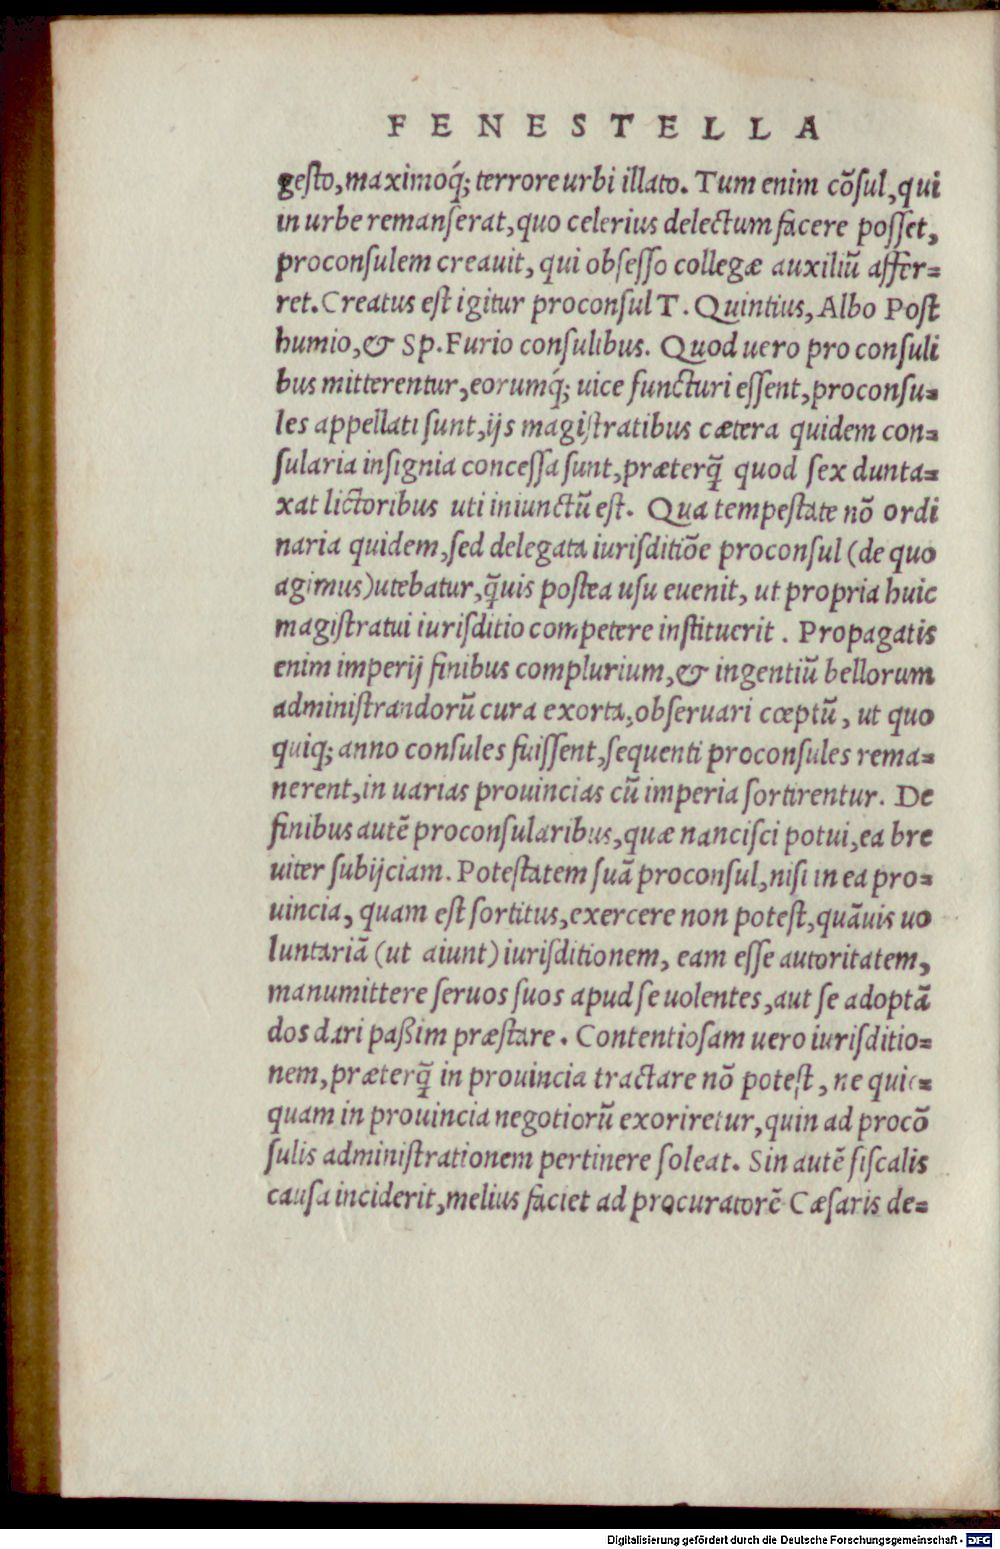 FENESTELLA
geſto, maximoq́; terrore urbi illato. Tum enim cōſul, qui
in urbe remanſerat, quo celerius delectum facere poſſet,
proconſulem creauit, qui obſeſſo collegæ auxiliū affer=
ret. Creatus eſt igitur proconſul T. Quintius, Albo Poſt
humio, & Sp. Furio conſulibus. Quod uero pro conſuli
bus mitterentur, eorumq́; uice functuri eſſent, proconſu=
les appellati ſunt, ijs magiſtratibus cætera quidem con=
ſularia inſignia conceſſa ſunt, præterq̄ quod ſex dunta=
xat lictoribus uti iniunctū eſt. Qua tempeſtate nō ordi
naria quidem, ſed delegata iuriſditiōe proconſul (de quo
agimus) utebatur, q̄uis poſtea uſu euenit, ut propria huic
magiſtratui iuriſditio competere inſtituerit. Propagatis
enim imperij finibus complurium, & ingentiū bellorum
adminiſtrandorū cura exorta, obſeruari cœptū, ut quo
quiq; anno conſules fuiſſent, ſequenti proconſules rema=
nerent, in uarias prouincias cū imperia ſortirentur. De
finibus autē proconſularibus, quæ nanciſci potui, ea bre
uiter ſubijciam. Poteſtatem ſuā proconſul, niſi in ea pro=
uincia, quam eſt ſortitus, exercere non poteſt, quāuis uo
luntariā (ut aiunt) iuriſditionem, eam eſſe autoritatem,
manumittere ſeruos ſuos apud ſe uolentes, aut ſe adoptā
dos dari paßim præſtare. Contentioſam uero iuriſditio=
nem, præterq̄ in prouincia tractare nō poteſt, ne quic=
quam in prouincia negotiorū exoriretur, quin ad procō
ſulis adminiſtrationem pertinere ſoleat. Sin autē fiſcalis
cauſa inciderit, melius faciet ad procuratorē Cæſaris de=
Digitalisierung gefördert durch die Deutsche Forschungsgemeinschaft - DFG